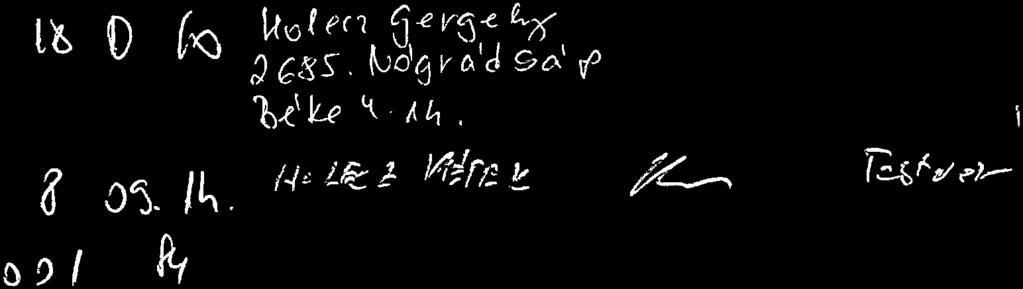 18 D 60 Holecz Gergely
2685. Nógrádsáp
Béke u. 14.
8 09. 14. HOLECZ PÉTER Testvér
001